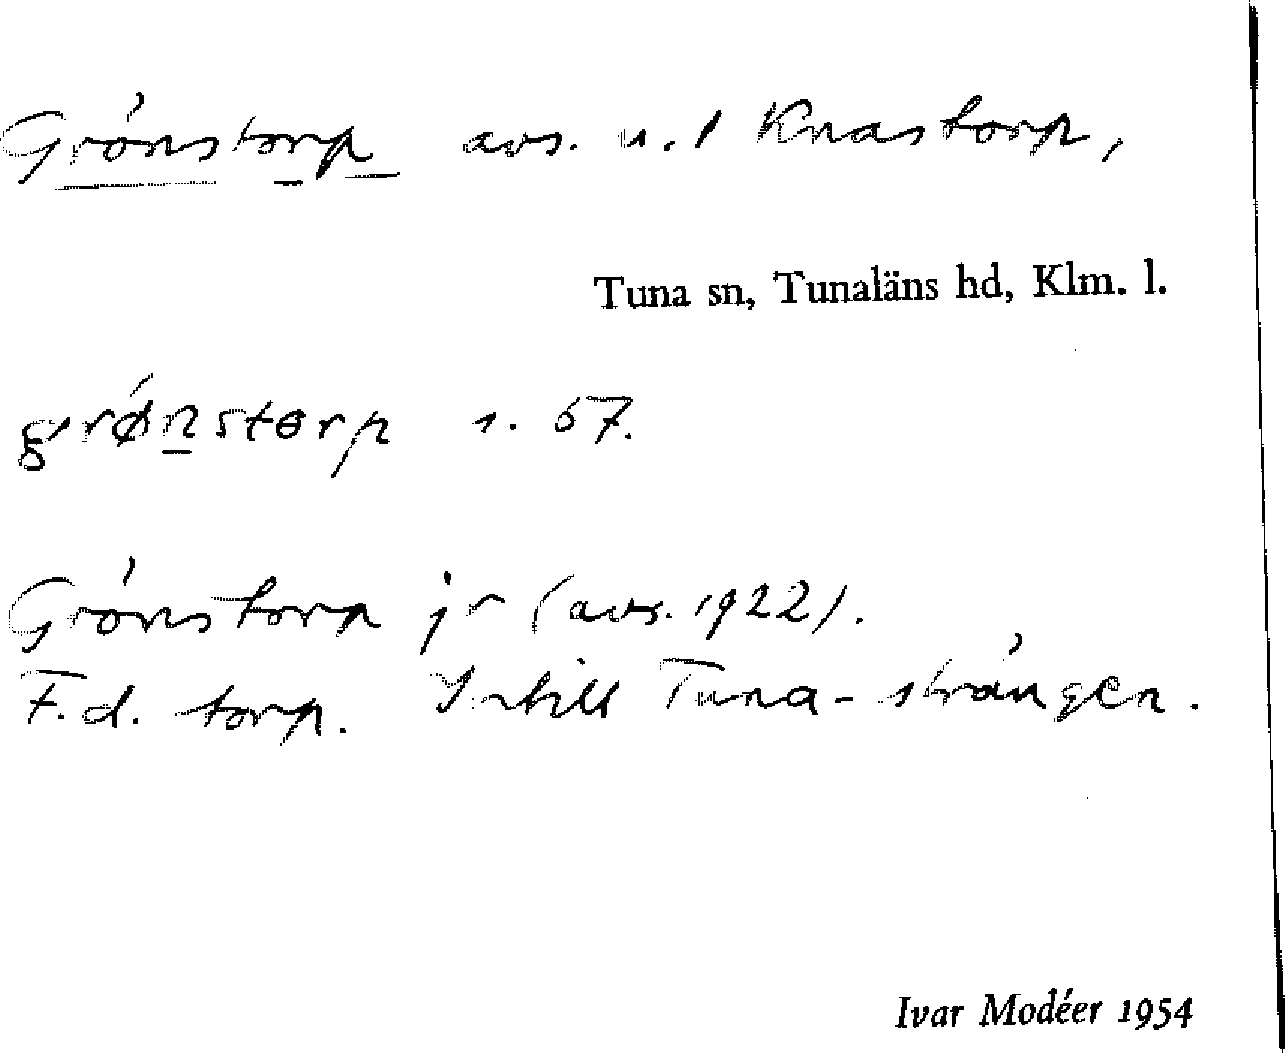 Grönstorp avs. u. 1 Knastorp,
Tuna sn, Tunaläns hd, Klm. l.
grǿnstɵrp s. 57.
Grönstorp jr (avs. 1922).
F.d. torp. Intill Tuna-strången.
Ivar Modéer 1954